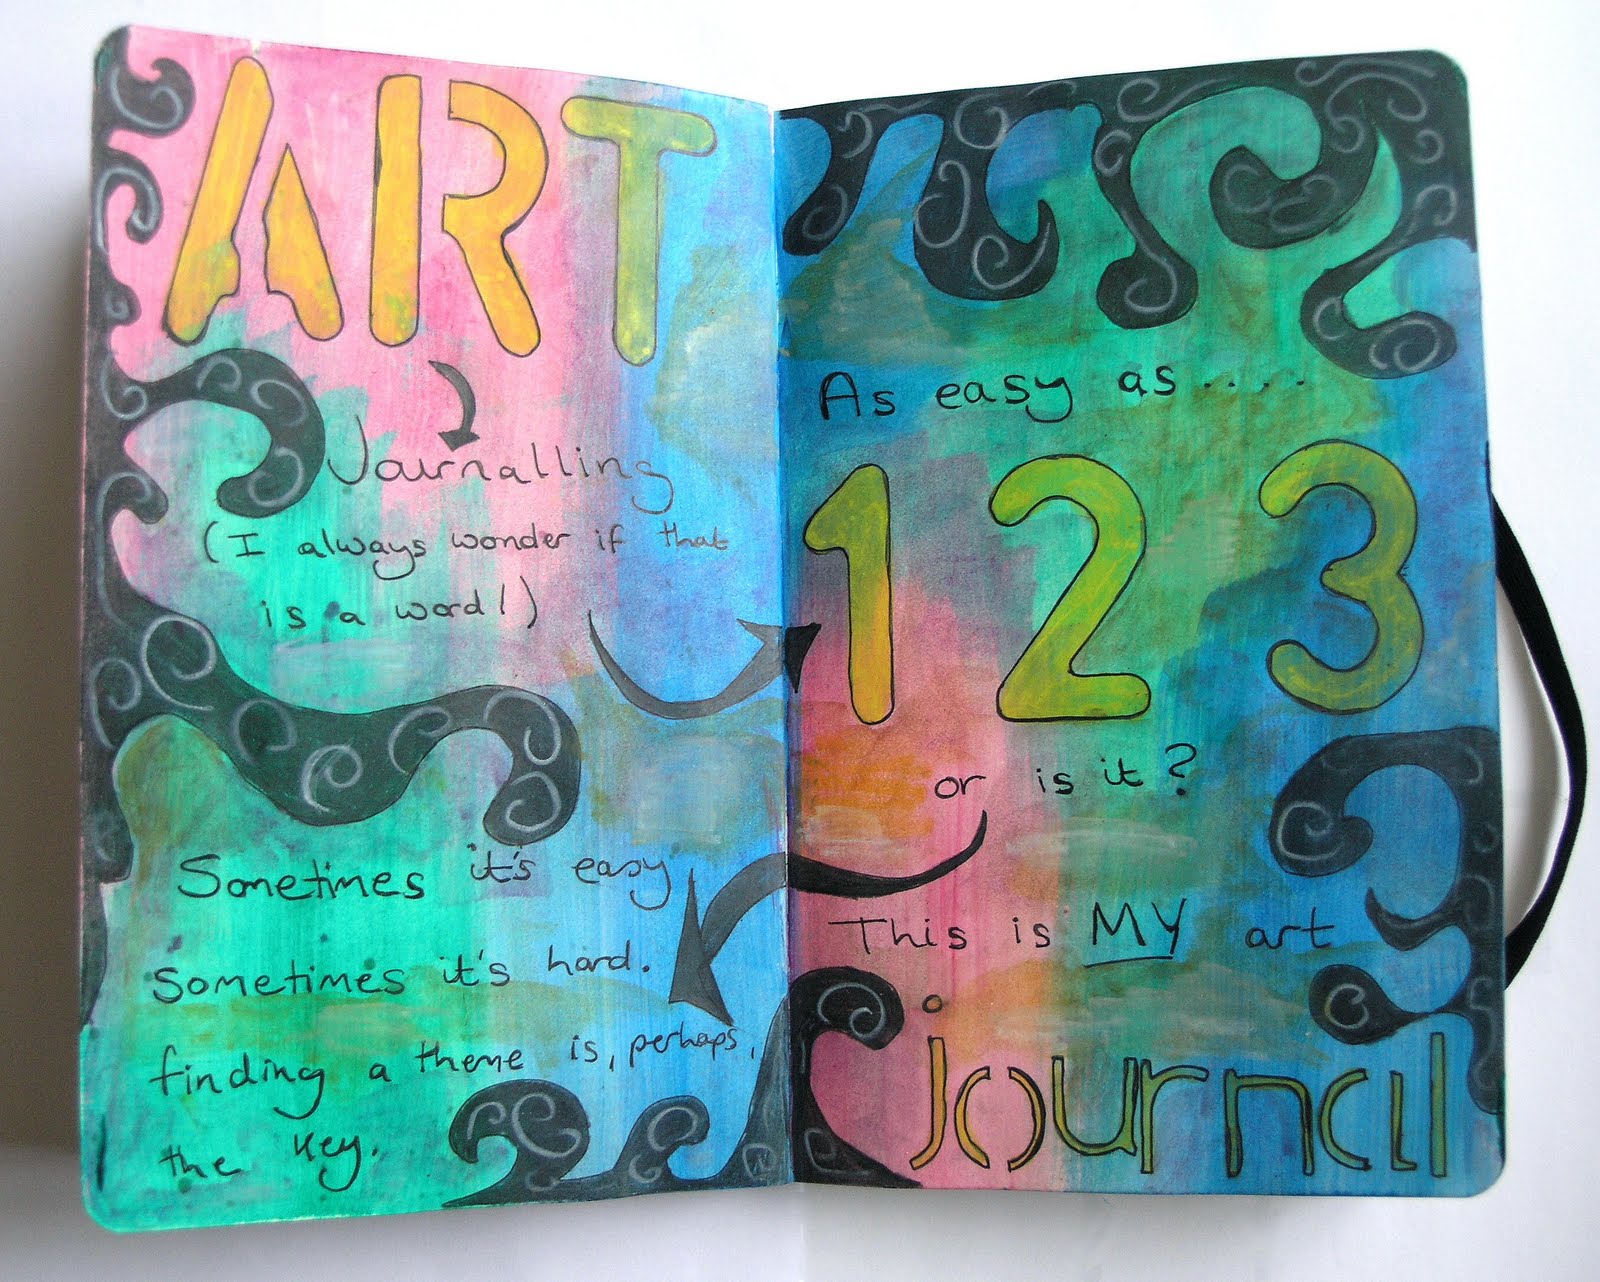 ART
Journalling
(I always wonder if that
is a word!)
As easy as....
1 2 3
or is it?
Sometimes it's easy
sometimes it's hard.
finding a theme is, perhaps,
the key.
This is MY art
journal